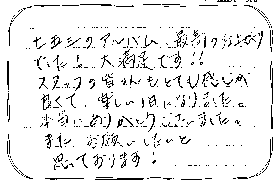 七五三のアルバム、最高の仕上がり
でした！大満足です!!
スタッフの皆さんもとても感じが
良くて、楽しい1日になりました。
本当にありがとうございました。
また、お願いしたいと
思っております！